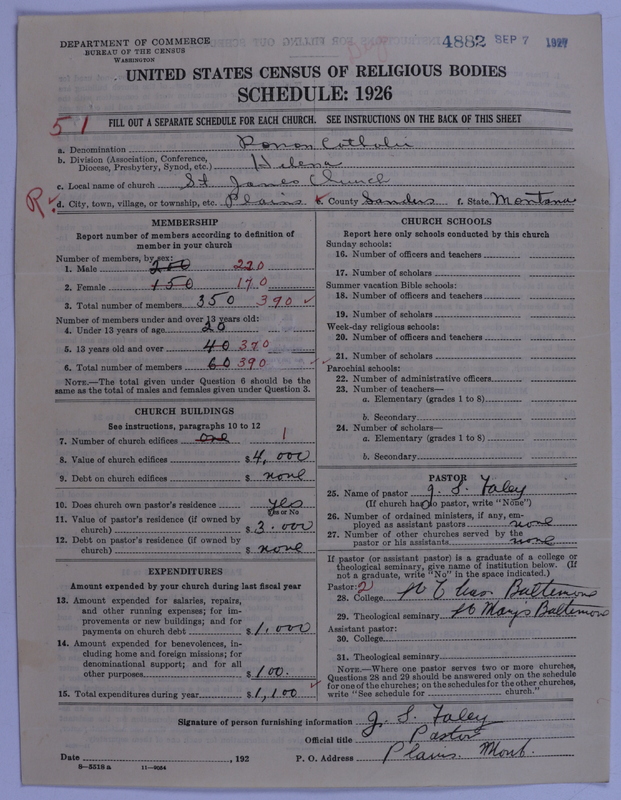 DEPARTMENT OF COMMERCE
BUREAU OF THE CENSUS
WASHINGTON
4882 SEP 7 1927
UNITED STATES CENSUS OF RELIGIOUS BODIES
SCHEDULE: 1926
51
FILL OUT A SEPARATE SCHEDULE FOR EACH CHURCH. SEE INSTRUCTIONS ON THE BACK OF THIS SHEET
a. Denomination Roman Catholic
b. Division (Association, Conference, Diocese, Presbytery, Synod, etc.) Helena
c. Local name of church St James Church
R. d. City, town, village, or township, etc. Plains County Sanders f. State Montana
MEMBERSHIP
Report number of members according to definition of member in your church
Number of members, by sex:
1. Male 250 220
2. Female 150 170
3. Total number of members 350 390
Number of members under and over 13 years old:
4. Under 13 years of age 20
5. 13 years old and over 40 370
6. Total number of members 60 390
NOTE.—The total given under Question 6 should be the same as the total of males and females given under Question 3.
CHURCH BUILDINGS
See instructions, paragraphs 10 to 12
7. Number of church edifices one 1
8. Value of church edifices $ 4,000
9. Debt on church edifices $ none
10. Does church own pastor's residence yes
Yes or No
11. Value of pastor's residence (if owned by church) $ 3.000
12. Debt on pastor's residence (if owned by church) $ none
EXPENDITURES
Amount expended by your church during last fiscal year
13. Amount expended for salaries, repairs, and other running expenses; for improvements or new buildings; and for payments on church debt $ 1,000
14. Amount expended for benevolences, including home and foreign missions; for denominational support; and for all other purposes $ 100.
15. Total expenditures during year $ 1,100
CHURCH SCHOOLS
Report here only schools conducted by this church
Sunday schools:
16. Number of officers and teachers
17. Number of scholars
Summer vacation Bible schools:
18. Number of officers and teachers
19. Number of scholars
Week-day religious schools:
20. Number of officers and teachers
21. Number of scholars
Parochial schools:
22. Number of administrative officers
23. Number of teachers—
a. Elementary (grades 1 to 8)
b. Secondary
24. Number of scholars—
a. Elementary (grades 1 to 8)
b. Secondary
PASTOR
25. Name of pastor J. S. Faley
(If church has no pastor, write "None")
26. Number of ordained ministers, if any, employed as assistant pastors none
27. Number of other churches served by the pastor or his assistants none
If pastor (or assistant pastor) is a graduate of a college or theological seminary, give name of institution below. (If not a graduate, write "No" in the space indicated.)
Pastor: 2
28. College St Chas. Baltimore
29. Theological seminary St Marys Baltimore
Assistant pastor:
30. College
31. Theological seminary
NOTE.—Where one pastor serves two or more churches, Questions 28 and 29 should be answered only on the schedule for one of the churches; on the schedules for the other churches, write "See schedule for church."
Signature of person furnishing information J. S. Faley
Official title Pastor
Date , 192 P. O. Address Plains. Mont.
8—5518a 11—9054